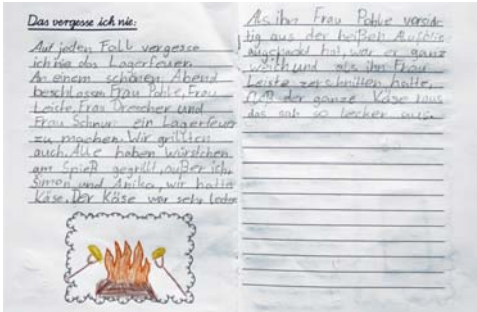 Das vergesse ich nie:
Auf jeden Fall vergesse
ich nie das Lagerfeuer.
An einem schönen Abend
beschlossen Frau Pohle, Frau
Leiste, Frau Drescher und
Frau Schnurr ein Lagerfeuer
zu machen. Wir grillten
auch. Alle haben Würstchen
am Spieß gegrillt, außer ich,
Simon und Anika, wir hatten
Käse. Der Käse war sehr lecker
Als ihn Frau Pohle vorsich-
tig aus der heißen Alufolie
ausgepackt hat, war er ganz
weich und als ihn Frau
Leiste zerschnitten hatte,
floß der ganze Käse raus
das sah so lecker aus.